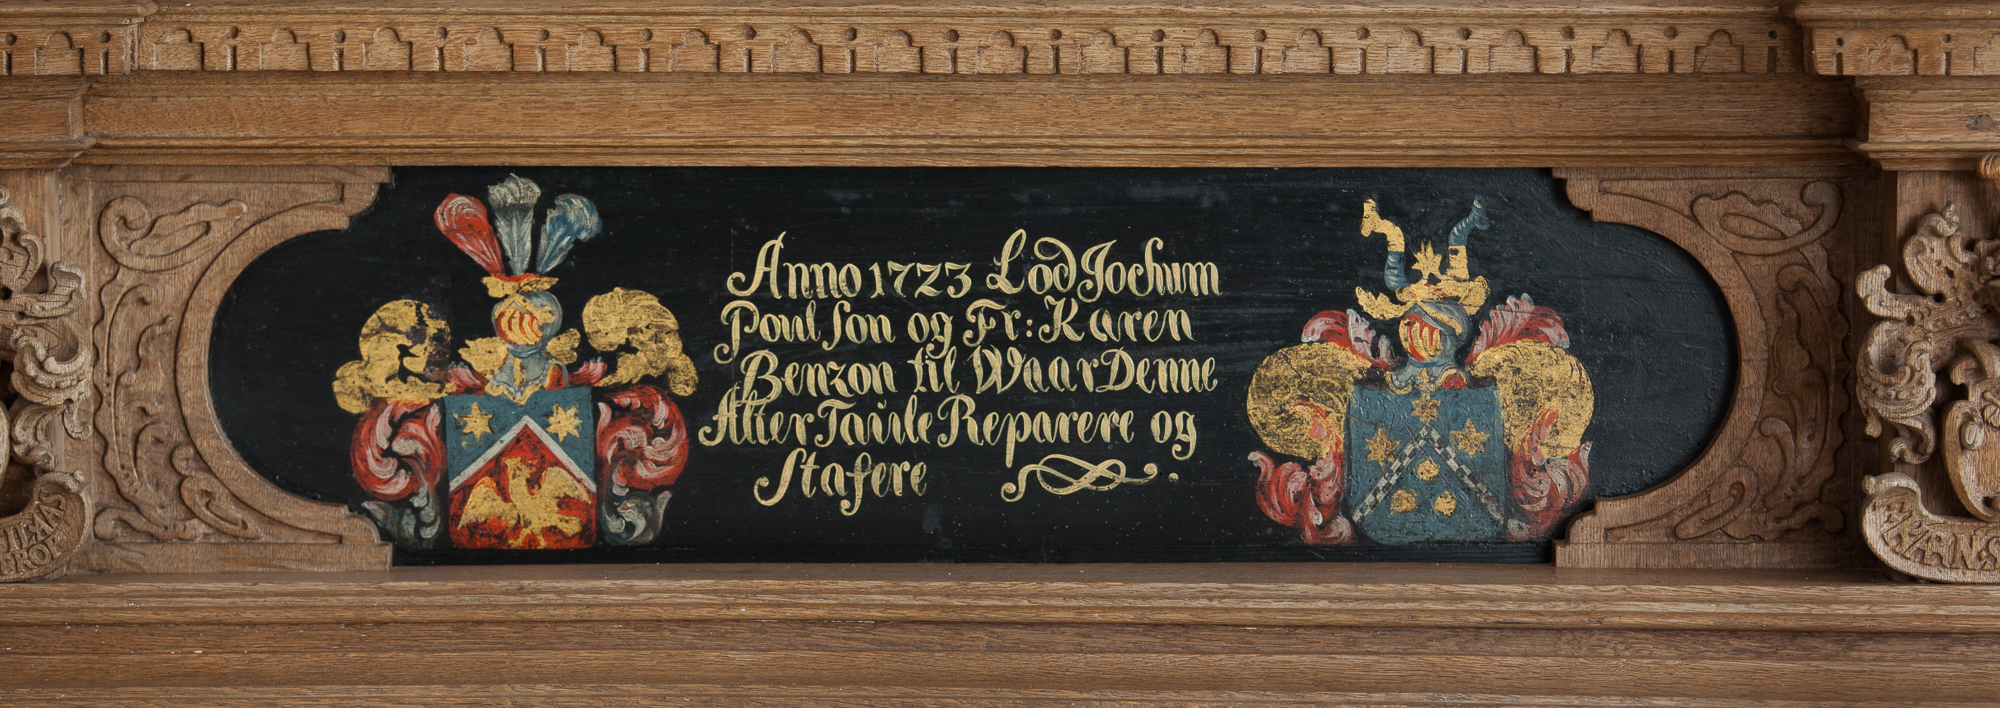 Anno 1723 Lod Jochum
Poul Son og Fr: Karen
Benzon til Waar Denne
Alter Taule Reparere og
Stafere